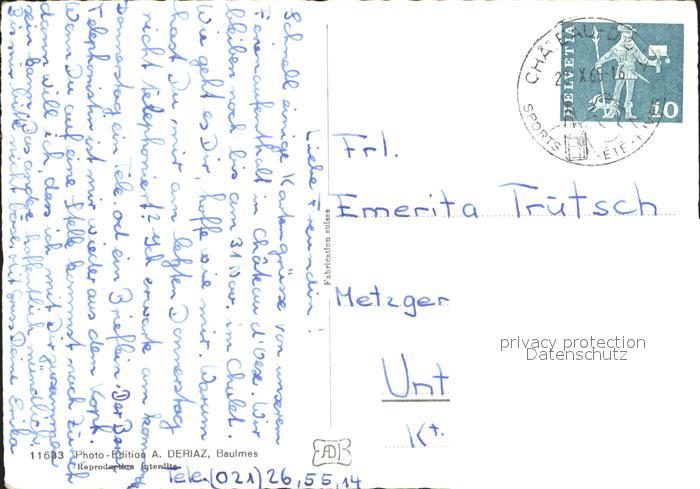 Liebe Freundin!
Schnell einige Kartengrüsse von unserem
Ferienaufenthalt in Château d'Oex. Wir
bleiben noch bis am 31 Nov. im Chalet.
Wie geht es Dir, hoffe wie mir. Warum
hast Du mir am letzten Donnerstag
nicht telephoniert? Ich erwarte am kommenden
Donnerstag ein Tele. od ein Brieflein. Der Beruf
Telephonistin ist mir wieder aus dem Kopf.
Wenn Du auf eine Stelle kommst nach Zürich
dann will ich, dass ich mit Dir zusammen
sein kann. Das andere hoffentlich mündlich.
Deine
Tele. (021) 26,55,14
11683 Photo-Edition A. DERIAZ, Baulmes
Reproduction interdite
Fabrication suisse
AD
HELVETIA
10
CHÂTEAU-D'
X.65-16
SPORTS
-ÉTÉ-
Frl.
Emerita Trütsch
Metzger
Unt
Kt.
privacy protection
Datenschutz